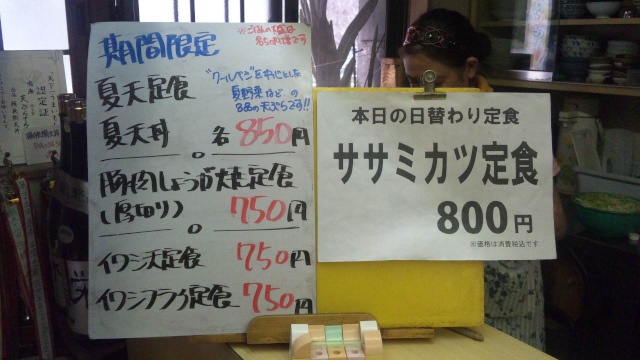 期間限定
※ごはんの大盛は
各50円増です
夏天定食
"クールベジ"を中心とした
夏野菜などの
8品の天ぷらです!!
夏天丼 各850円
豚肉しょうが焼定食
(厚切り) 750円
イワシ天定食 750円
イワシフライ定食 750円
本日の日替わり定食
ササミカツ定食
800円
※価格は消費税込です
認定証